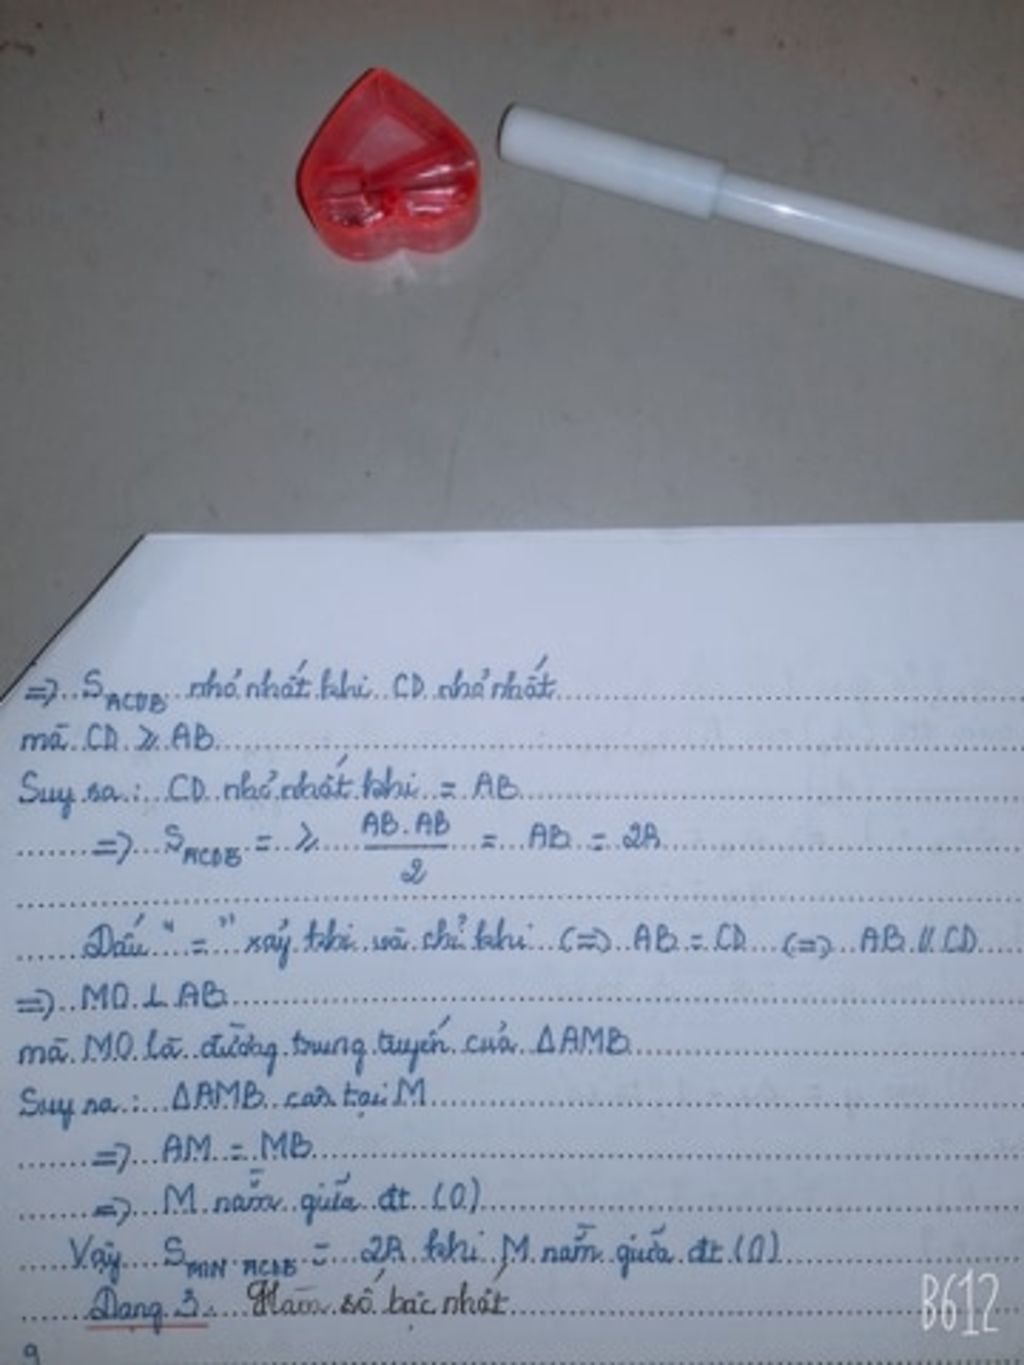 => S ACDB nhỏ nhất khi CD nhỏ nhất
mà CD ⩾ AB
Suy ra : CD nhỏ nhất khi = AB
=> S ACDB = ⩾ AB.AB / 2 = AB = 2R
Dấu " = " xảy khi và chỉ khi (=) AB = CD (=) AB // CD
=> MO ⊥ AB
mà MO là đường trung tuyến của ΔAMB
Suy ra : ΔAMB cân tại M
=> AM = MB
=> M nằm giữa đt (O)
Vậy S MIN ACDB = 2R khi M nằm giữa đt (O)
Dạng 3. Hàm số bậc nhất
9
B612